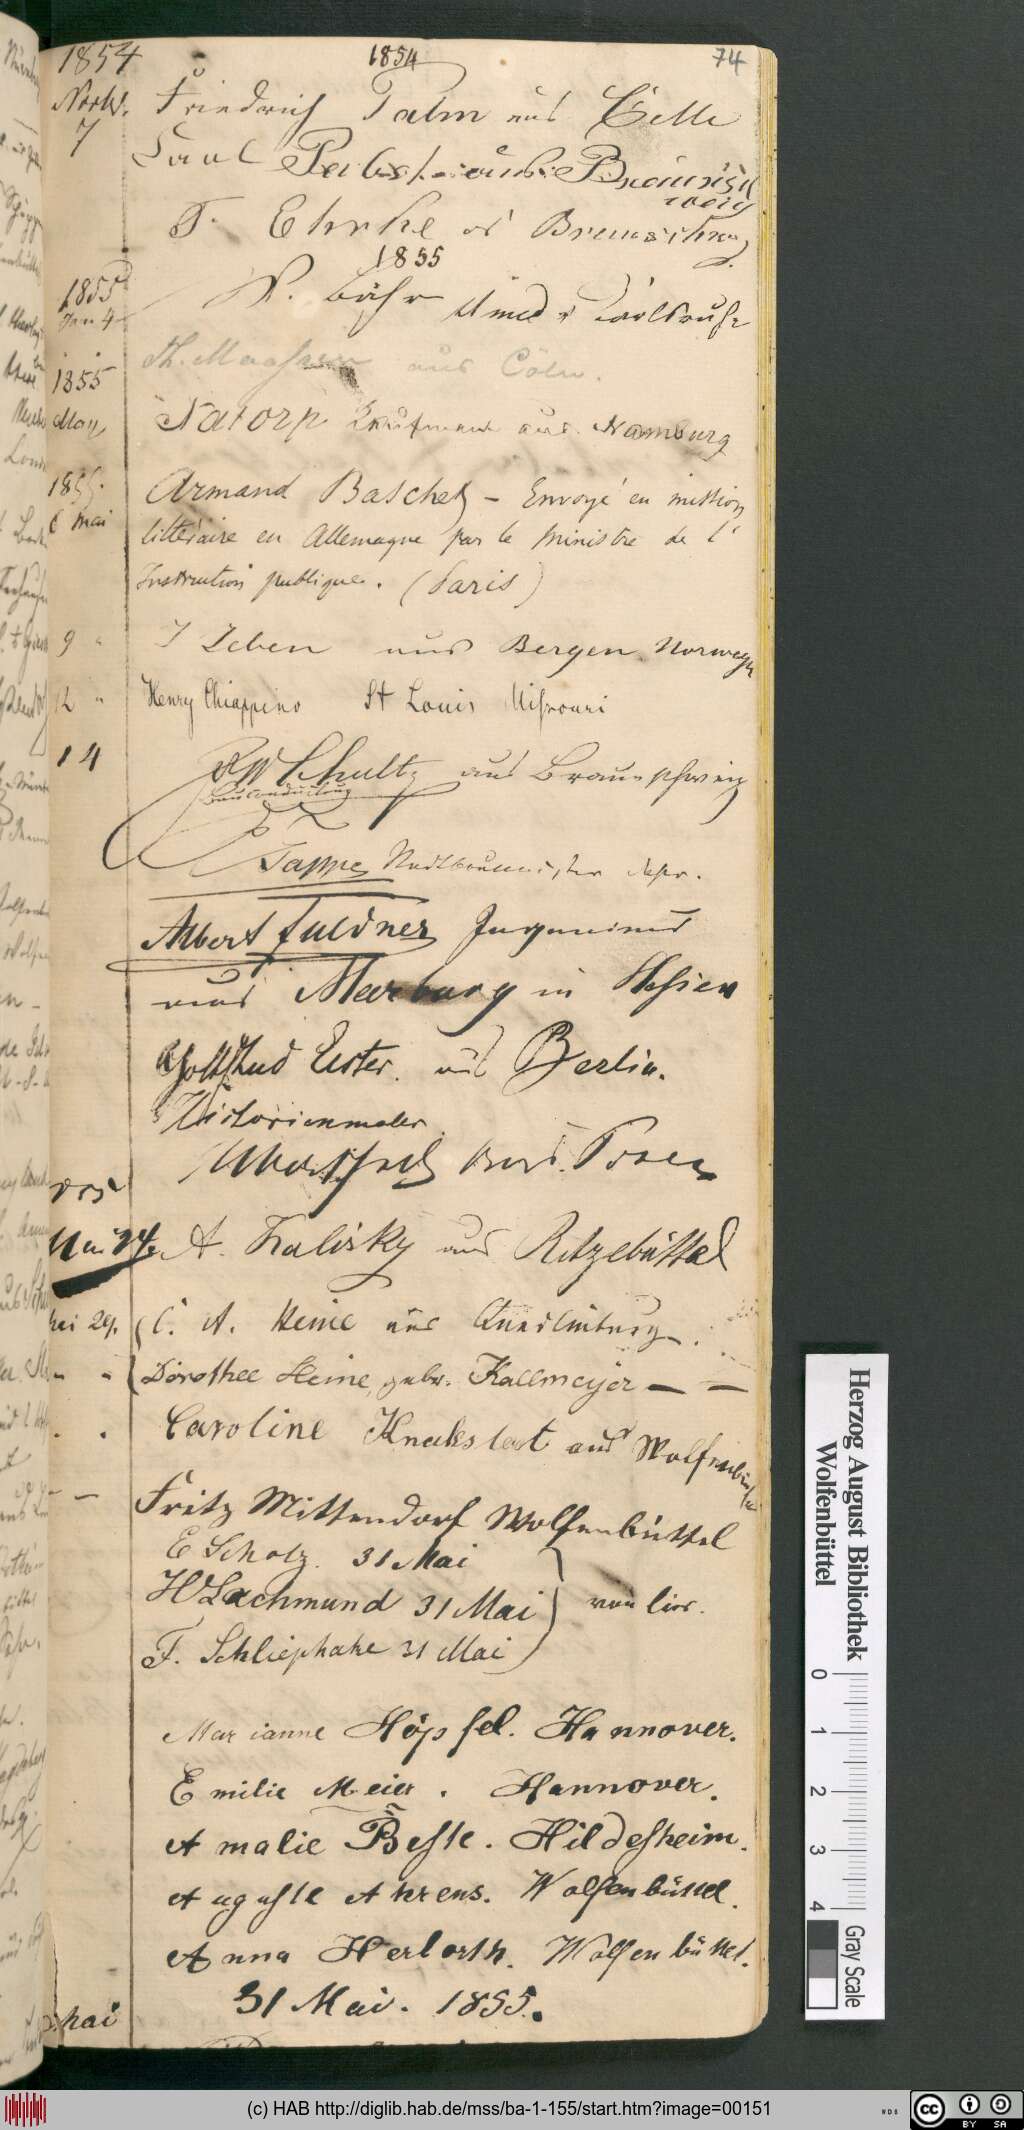 1854 1854 74
Novbr. Friedrich Palm aus Celle
7
Carl Pabst aus Braunschweig
F. Ehrke
1855
1855 W. Bähr Carlsruhe
Jan 4
Th. Maassen aus Cöln.
1855 Natorp Kaufmann aus Hamburg
May
1855. Armand Baschet – Envoyé en mission
6 mai littéraire en Allemagne par le Ministre de l'
Instruction publique. (Paris)
9 " aus Bergen Norwegen
12 " Henry Chiappino St Louis Missouri
14 Schultz aus Braunschweig
Bauconducteur
Tappe Stadtbaumeister
Albert Fuldner
aus Marburg in Hessen
Elster. aus Berlin.
Historienmaler.
Posen
Mai 24. A. Kalisky aus Ritzebüttel
Mai 29. C. A. Heine aus Quedlinburg
" " Dorothee Heine, gebr. Kallmeyer — —
" " Caroline Knakstert aus Wolfenbüttel
– – Fritz Mittendorf Wolfenbüttel
E Scholz. 31 Mai
H Lachmund 31 Mai von hier.
F. Schliephake 31 Mai
Marianne Höpfel. Hannover.
Emilie Meier. Hannover.
Amalie Beste. Hildesheim.
Auguste Ahrens. Wolfenbüttel.
Anna Herborth. Wolfenbüttel.
31 Mai. 1855.
Mai
Herzog August Bibliothek
Wolfenbüttel
0 1 2 3 4
Gray Scale
(c) HAB http://diglib.hab.de/mss/ba-1-155/start.htm?image=00151
WDB
cc BY SA